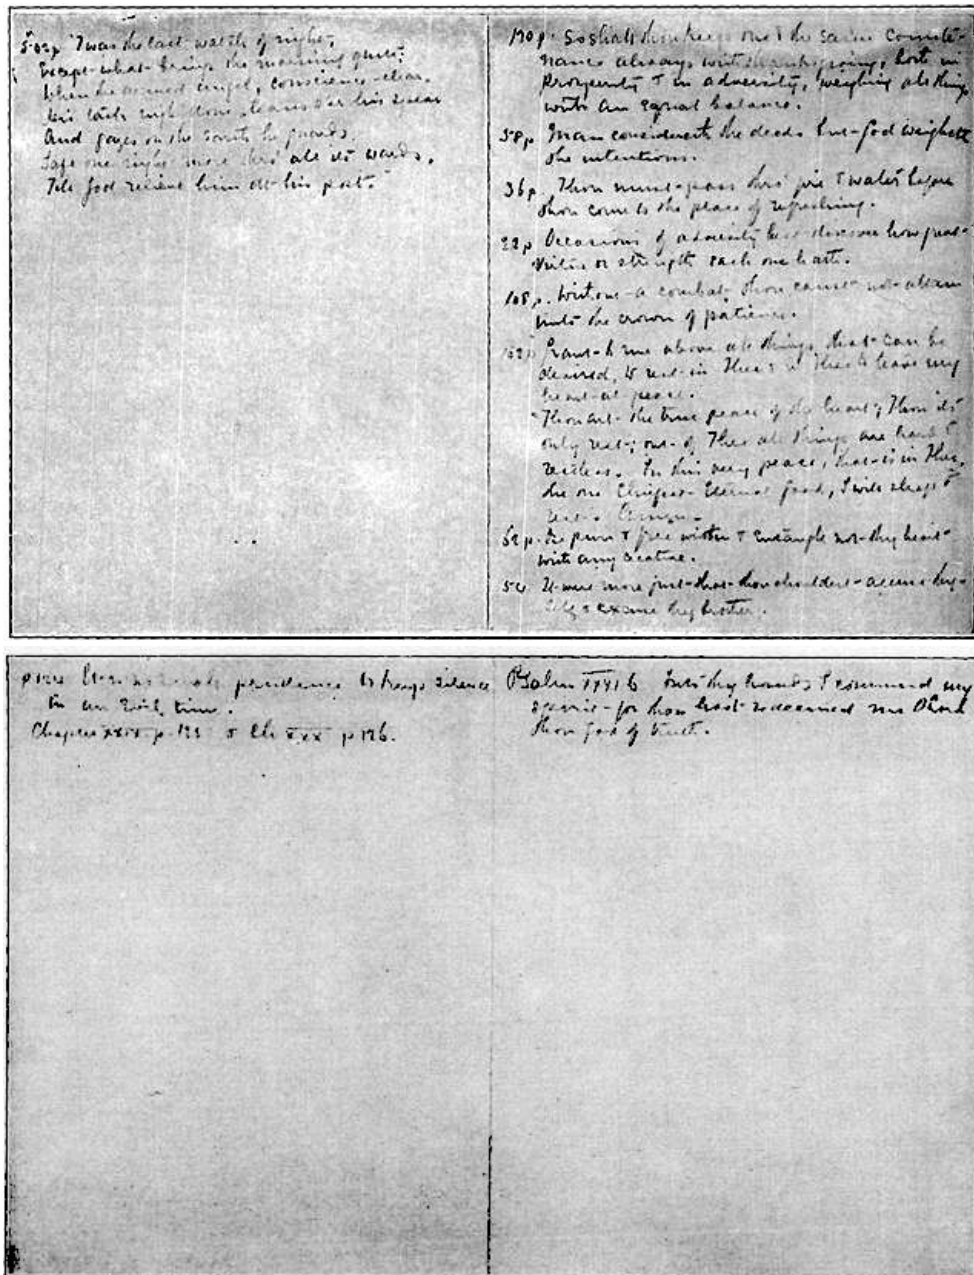 502p 'Twas the last watch of night,
Except what brings the morning quite;
When the armed angel, conscience-clear,
His task nigh done, leans o'er his spear
And gazes on the earth he guards,
Safe one night more thro' all its wards,
Till God relieve him at his post."
170 p. So shalt thou keep one & the same counte-
nance always with thanksgiving, both in
Prosperity & in adversity, weighing all things
with an equal balance.
58 p Man considereth the deeds but God weigheth
the intentions.
36 p. Thou must pass thro' fire & water before
thou come to the place of refreshing.
22 p Occasions of adversity best discover how great
Virtue or strength each one hath.
168 p. Without a combat thou canst not attain
unto the crown of patience.
Grant to me above all things that can be
desired, to rest in Thee & in Thee to have my
heart at peace.
"Thou art the true peace of the heart; Thou its
only rest; out of Thee all things are hard &
restless. In this very peace, that is in Thee,
the one Chiefest Eternal Good, I will sleep &
rest. Amen.
62 p. Be pure & free within & entangle not thy heart
with any creature.
54 It were more just that thou shouldest accuse thy-
self & excuse thy brother.
p 124 It is no small prudence to keep silence
in an evil time.
Chapter XXIX p 125 & Ch XXX p 126.
Psalm XXXI 6 Into thy hands I commend my
spirit for thou hast redeemed me O Lord
thou God of truth.